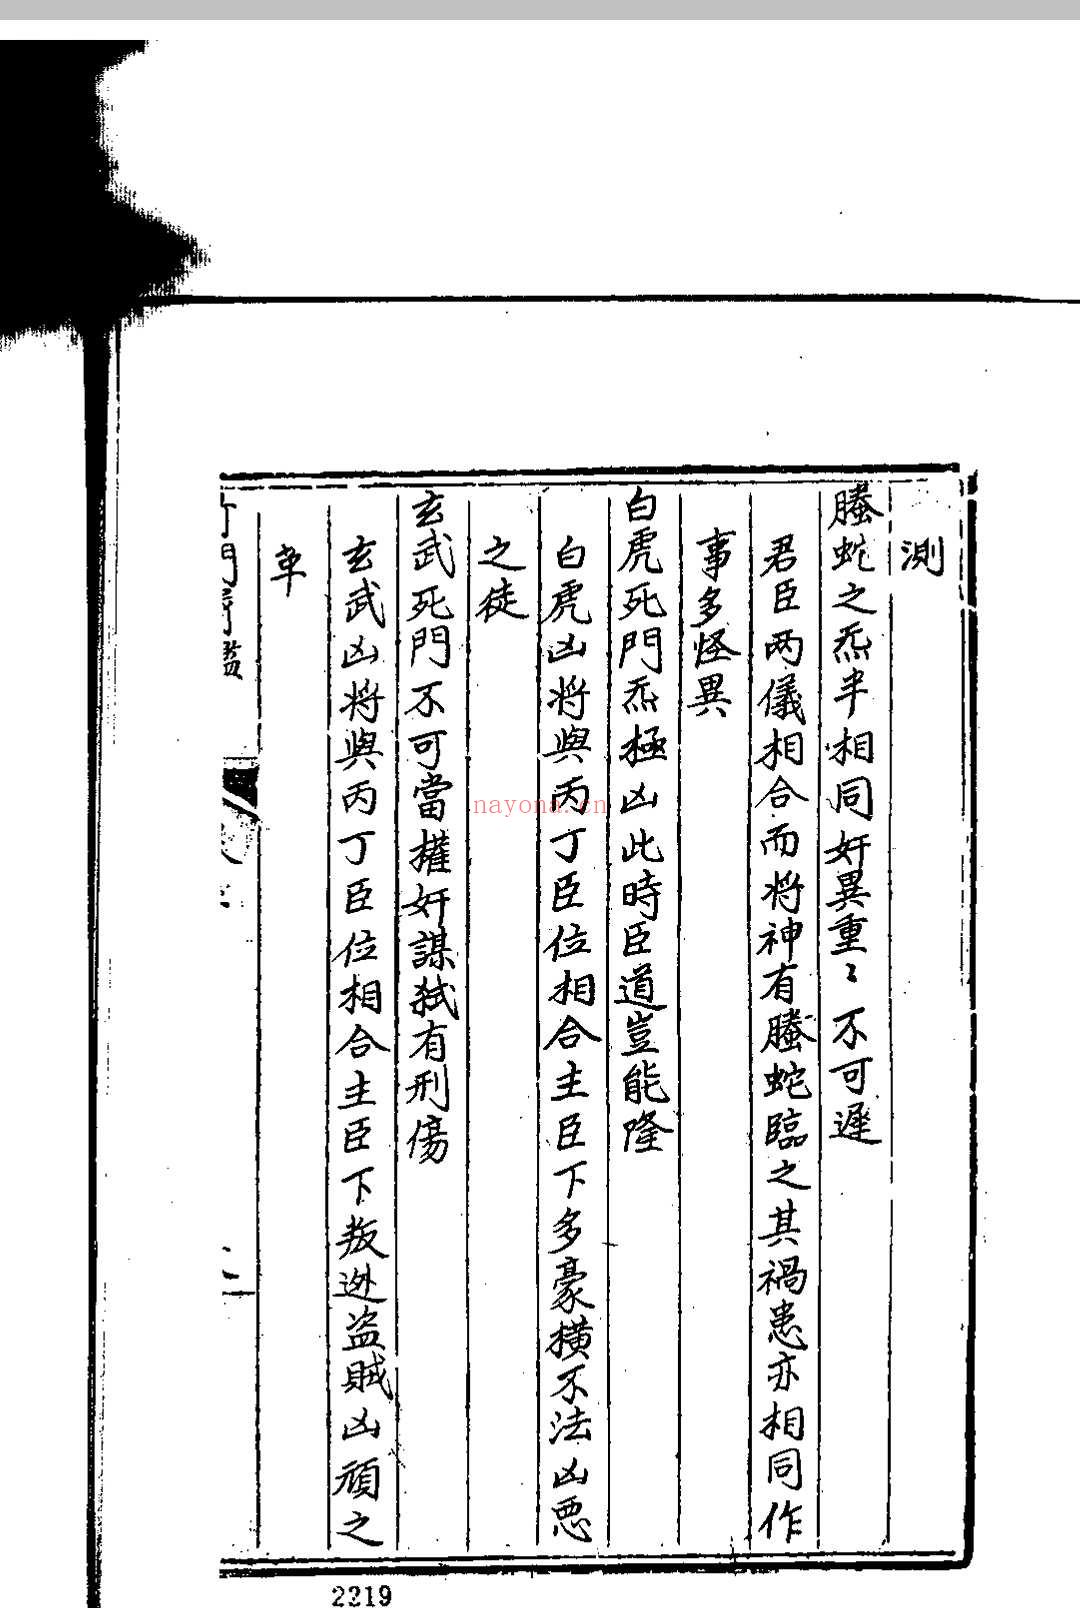 測
螣蛇之炁半相同奸異重〻不可遲
君臣两儀相合而将神有螣蛇臨之其禍患亦相同作
事多怪異
白虎死門炁極凶此時臣道豈能隆
白虎凶将與丙丁臣位相合主臣下多豪横不法凶悪
之徒
玄武死門不可當權奸謀弑有刑傷
玄武凶将與丙丁臣位相合主臣下叛逃盗賊凶頑之
卒
nayona.cn
2219